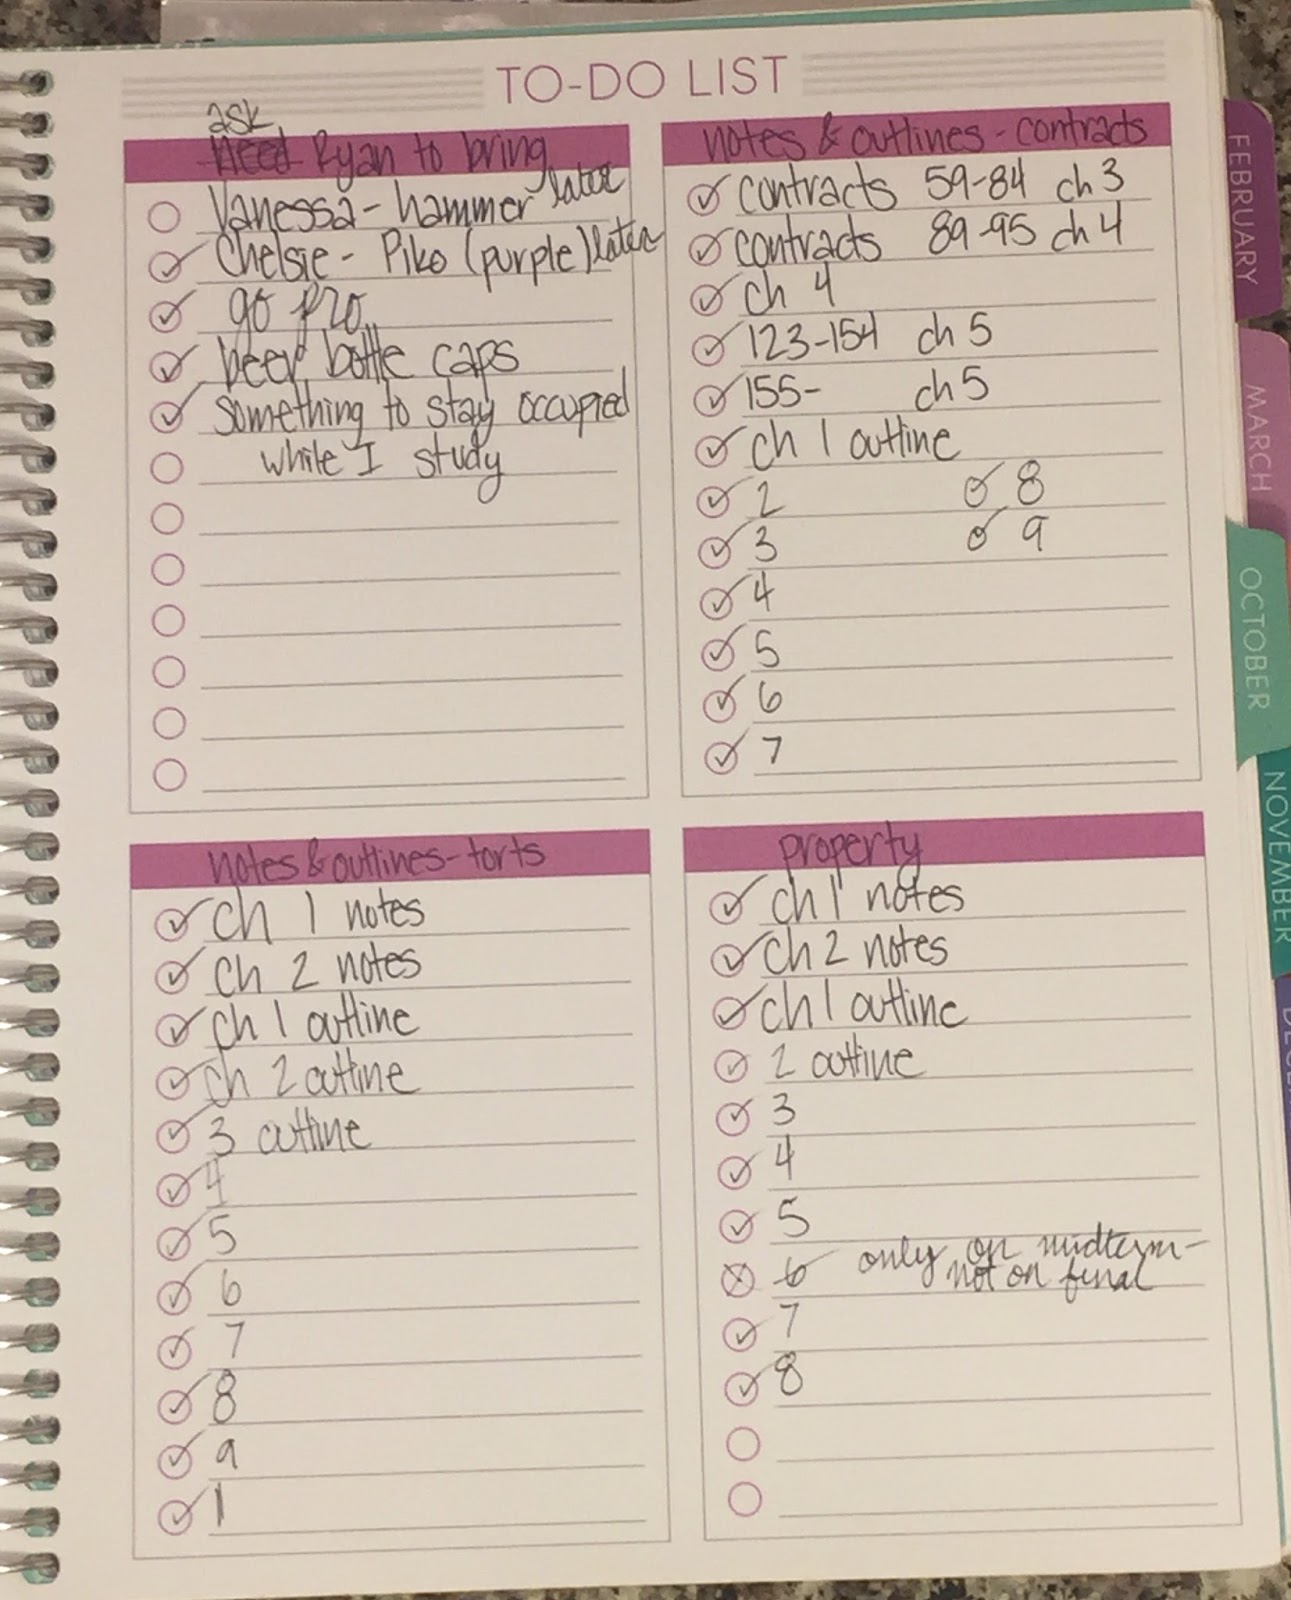 TO-DO LIST
ask
Need Ryan to bring
Vanessa - hammer later
Chelsie - Piko (purple) later
go pro
beer bottle caps
something to stay occupied
while I study
notes & outlines - contracts
contracts 59-84 ch 3
contracts 89-95 ch 4
ch 4
123-154 ch 5
155- ch 5
ch 1 outline
2 8
3 9
4
5
6
7
notes & outlines - torts
ch 1 notes
ch 2 notes
ch 1 outline
ch 2 outline
3 outline
4
5
6
7
8
9
1
property
ch 1 notes
ch 2 notes
ch 1 outline
2 outline
3
4
5
6 only on midterm -
not on final
7
8
FEBRUARY
MARCH
OCTOBER
NOVEMBER